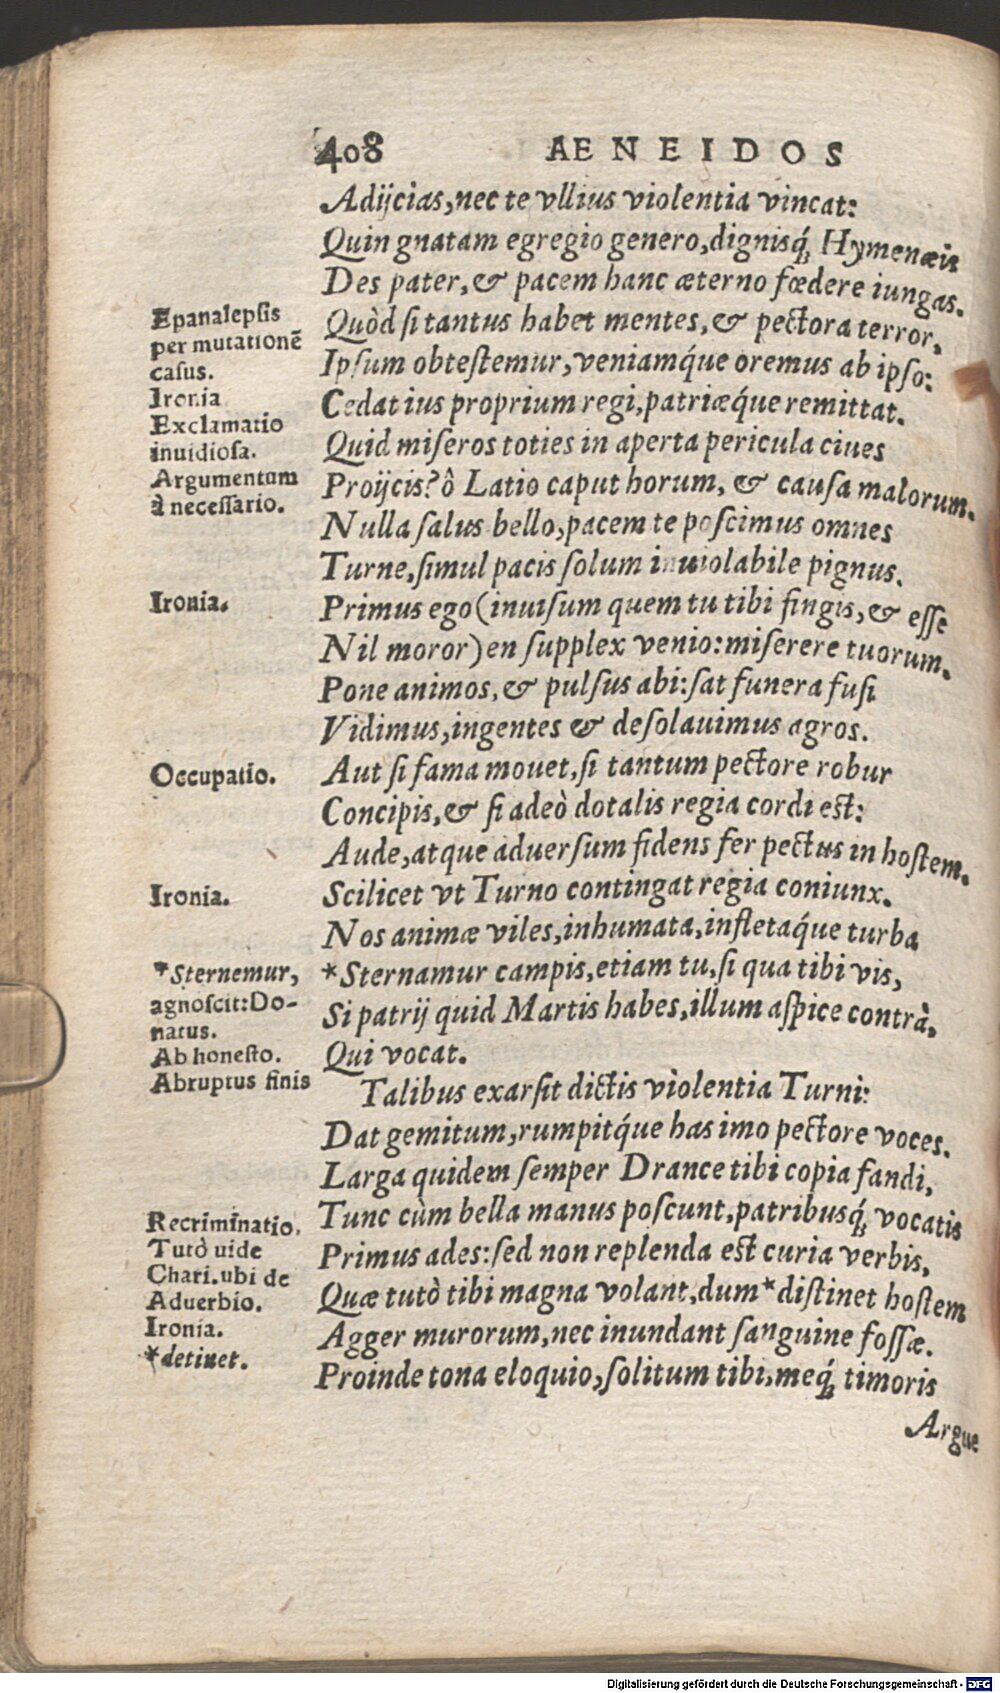 408 AENEIDOS
Adijcias, nec te vllius violentia vincat:
Quin gnatam egregio genero, dignisq́; Hymenæis
Des pater, & pacem hanc æterno fœdere iungas.
Epanalepsis
per mutationẽ
casus.
Quòd si tantus habet mentes, & pectora terror,
Ipsum obtestemur, veniamq́ue oremus ab ipso:
Ironia
Cedat ius proprium regi, patriæq́ue remittat.
Exclamatio
inuidiosa.
Quid miseros toties in aperta pericula ciues
Argumentum
à necessario.
Proijcis? ô Latio caput horum, & causa malorum.
Nulla salus bello, pacem te poscimus omnes
Turne, simul pacis solum inuiolabile pignus.
Ironia.
Primus ego (inuisum quem tu tibi fingis, & esse
Nil moror) en supplex venio: miserere tuorum.
Pone animos, & pulsus abi: sat funera fusi
Vidimus, ingentes & desolauimus agros.
Occupatio.
Aut si fama mouet, si tantum pectore robur
Concipis, & si adeò dotalis regia cordi est:
Aude, atque aduersum fidens fer pectus in hostem.
Ironia.
Scilicet vt Turno contingat regia coniunx.
Nos animæ viles, inhumata, infletaq́ue turba
*Sternemur,
agnoscit: Do-
natus.
*Sternamur campis, etiam tu, si qua tibi vis,
Si patrij quid Martis habes, illum aspice contrà,
Ab honesto.
Qui vocat.
Abruptus finis
Talibus exarsit dictis violentia Turni:
Dat gemitum, rumpitq́ue has imo pectore voces.
Larga quidem semper Drance tibi copia fandi,
Recriminatio.
Tunc cùm bella manus poscunt, patribusq́; vocatis
Tutò uide
Chari. ubi de
Aduerbio.
Primus ades: sed non replenda est curia verbis,
Quæ tutò tibi magna volant, dum *distinet hostem
Ironia.
Agger murorum, nec inundant sanguine fossæ.
*detinet.
Proinde tona eloquio, solitum tibi, meq́; timoris
Argue
Digitalisierung gefördert durch die Deutsche Forschungsgemeinschaft - DFG